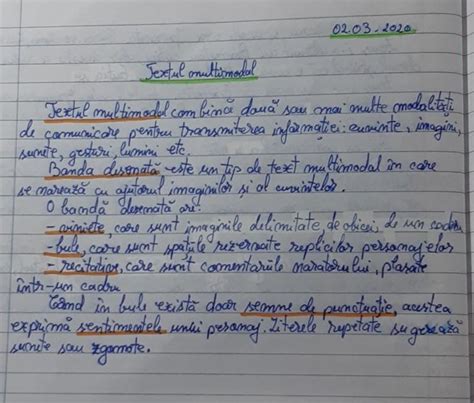 02.03.2020
Textul multimodal
Textul multimodal combină două sau mai multe modalități
de comunicare pentru transmiterea informației: cuvinte, imagini,
sunete, gesturi, lumini etc.
Banda desenată este un tip de text multimodal în care
se narează cu ajutorul imaginilor și al cuvintelor.
O bandă desenată are:
- viniete, care sunt imaginile delimitate, de obicei, de un cadru
- bule, care sunt spațiile rezervate replicilor personajelor
- recitative, care sunt comentariile naratorului, plasate
într-un cadru
Când în bule există doar semne de punctuație, acestea
exprimă sentimentele unui personaj. Literele repetate sugerează
sunete sau zgomote.